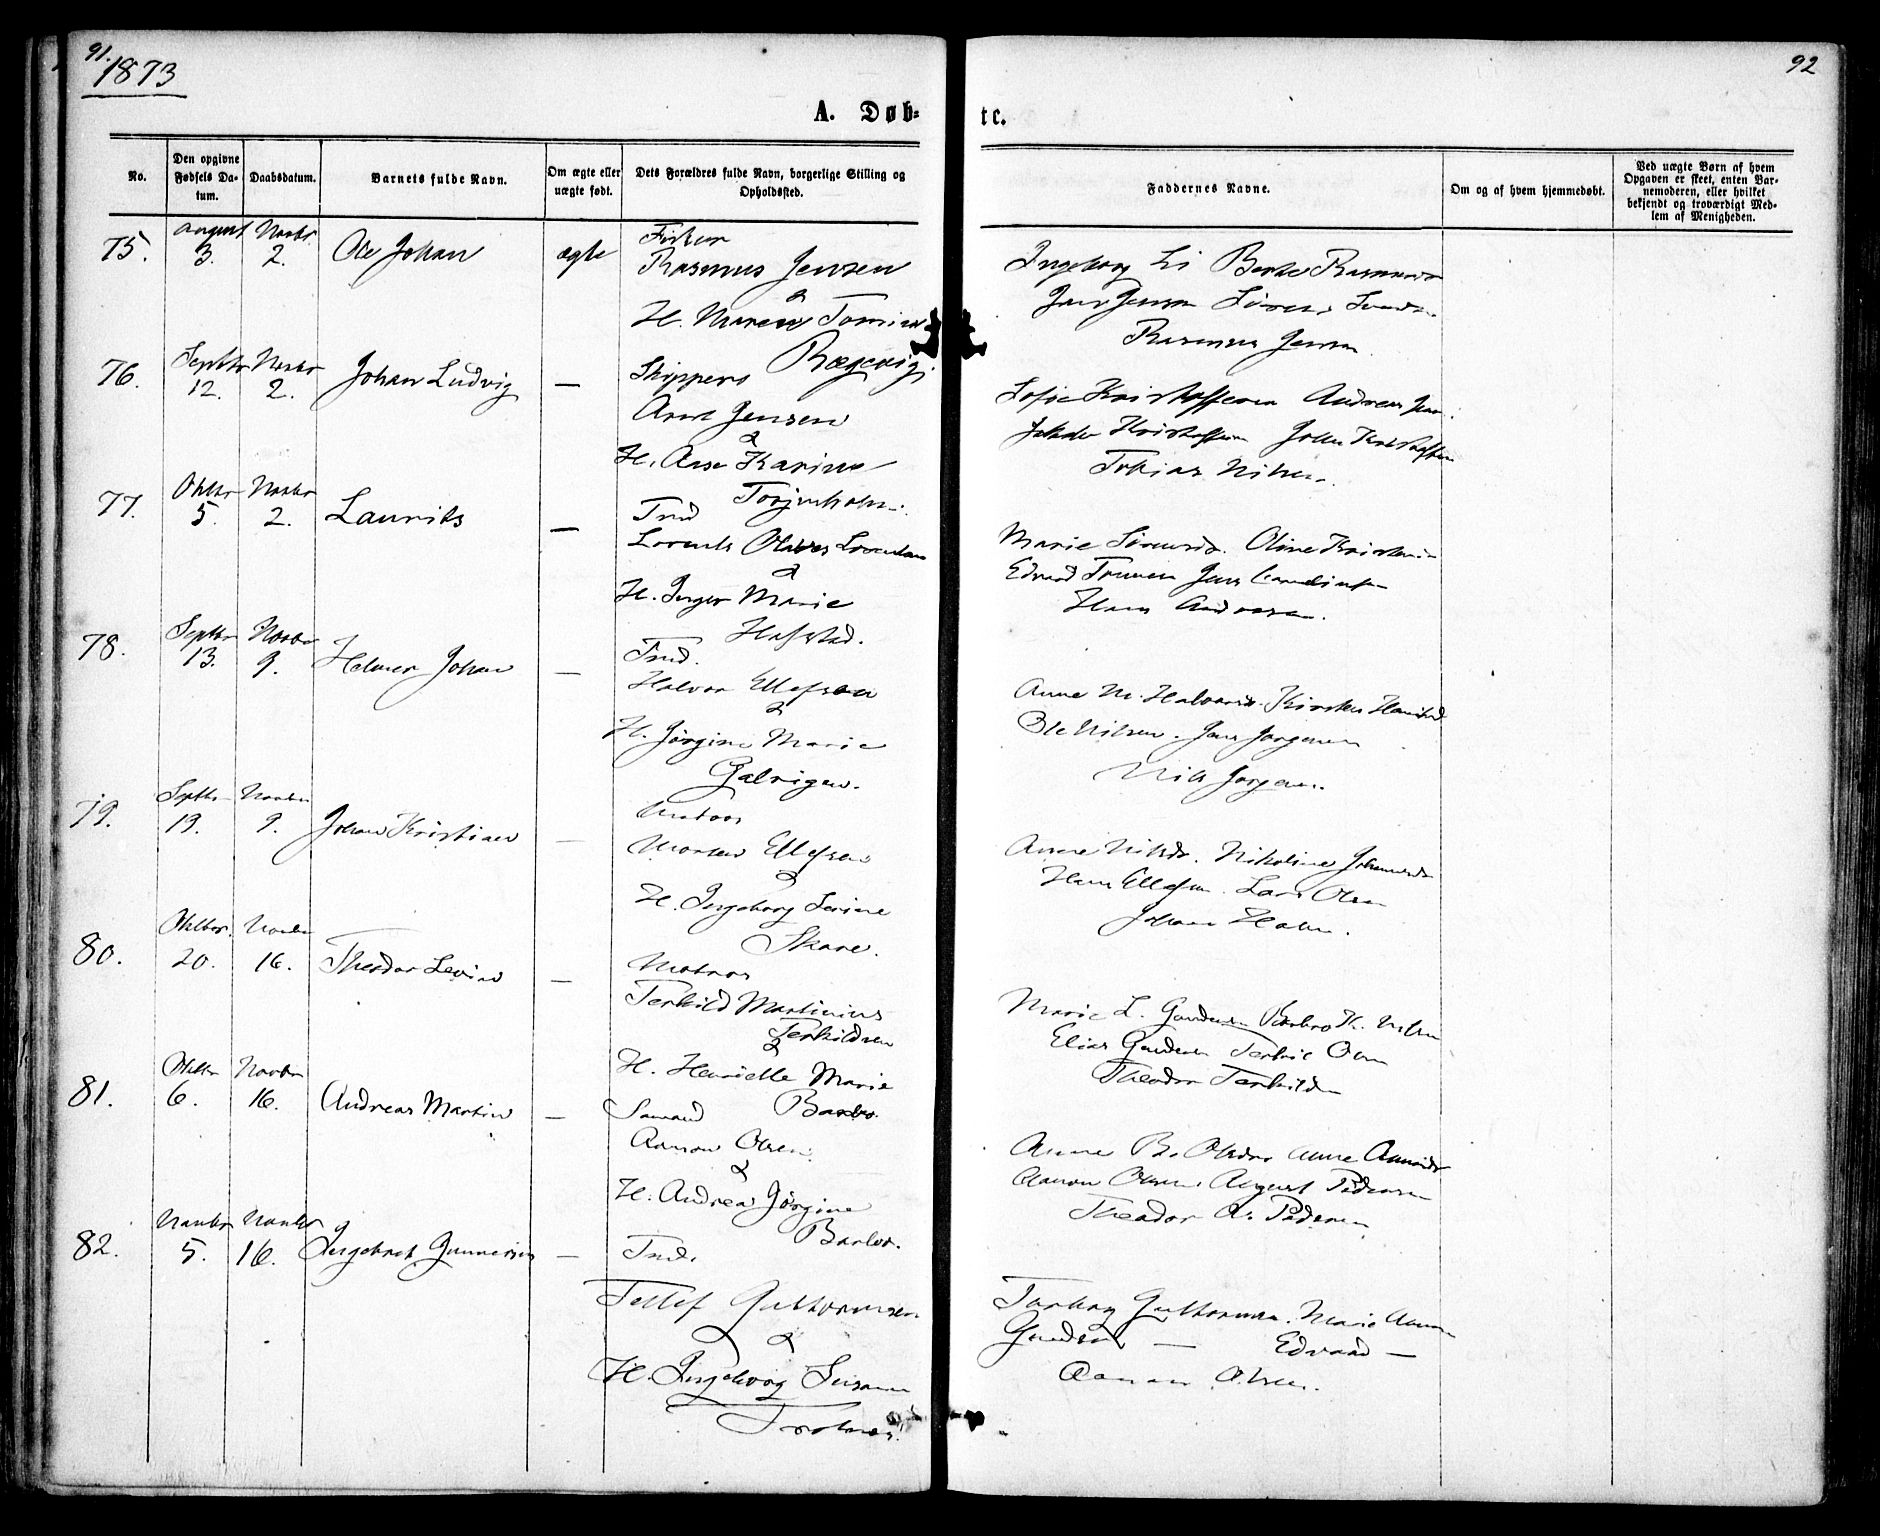 91.
1873
92
A. Døb-
te.
No.
Den opgivne Fødsels Da-tum.
Daabsdatum.
Barnets fulde Navn.
Om ægte eller uægte født.
Dets Forældres fulde Navn, borgerlige Stilling og Opholdssted.
Faddernes Navne.
Om og af hvem hjemmedøbt.
Ved uægte Børn af hvem Opgaven er skeet, enten Bar-nemoderen, eller hvilket bekjendt og troværdigt Med-lem af Menigheden.
75. August 3. Novbr 2. Ole Johan ægte Fisker
Rasmus Jensen
&
H. Maren
Ingeborg Berthe
Jens Jensen
Rasmus Jensen
76. Septbr 12. Novbr 2. Johan Ludvig — Skippers
Jensen
&
H. Anse Karine
Sofie Kristoffersen Andreas
Johan Kristoffersen
Tobias Nilsen.
77. Oktbr 5. Novbr 2. Laurits — Tnd
Lorents
&
H. Inger Marie
Hafstad.
Marie Oline
Edvard Jens
Hans Andersen.
78. Septbr 13. Novbr 9. Helmer Johan — Tnd.
Halvor Ellefsen
&
H. Jørgine Marie
Anne M. Kirsten
Ole Nilsen. Jens Jørgensen
Nils Jørgensen.
79. Septbr 19. Novbr 9. Johan Kristian — Matros
Morten Ellefsen
&
H. Ingeborg Serine
Skare.
Anne Nilsdr. Nikoline
Hans Ellefsen. Lars Olsen
Johan
80. Oktbr. 20. Novbr 16. Theodor Levin — Matros
Terkild Martinius
Terkildsen
&
H. Henriette Marie
Barbo.
Marie L. Gundersen Barbro K. Nilsen
Elias Gundersen Terkil Olsen
Theodor Terkildsen
81. Oktbr 6. Novbr 16. Andreas Martin — Sømand
Aanon Olsen.
&
H. Andrea Jørgine
Barbo.
Anne B. Olsdr. Anne
Aanon Olsen. August Pedersen
Theodor A. Pedersen
82. Novbr 5. Novbr 16. Ingebret — Tnd.
Tellef Guttormsen.
&
H. Ingeborg Susanne
Torborg Guttormsen. Marie
— Edvard —
Aanon Olsen.